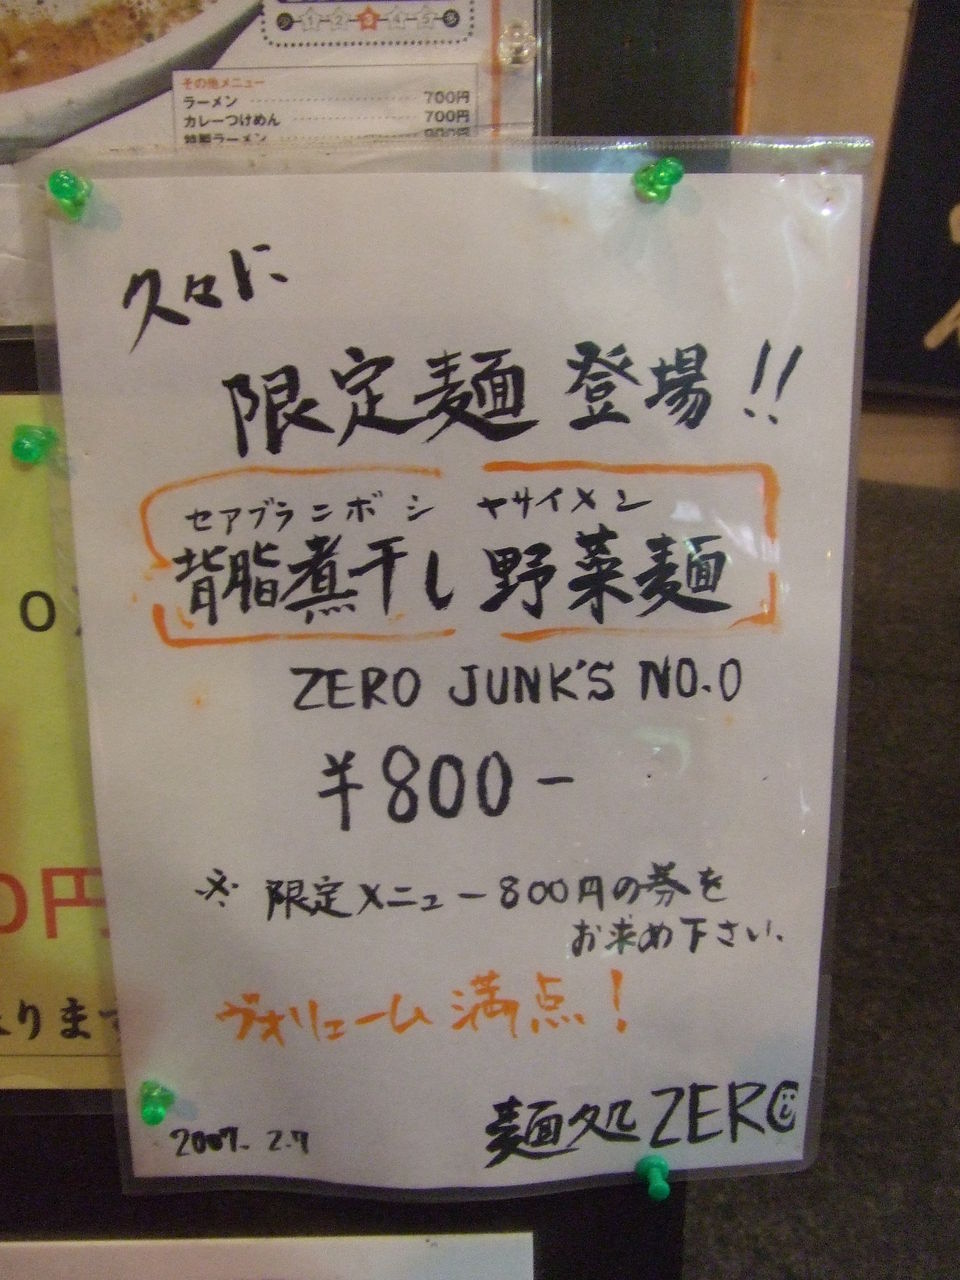 少 1 2 3 4 5 多
その他メニュー
ラーメン 700円
カレーつけめん 700円
特製ラーメン 900円
久々に
限定麺 登場!!
セアブラニボシ ヤサイメン
背脂煮干し 野菜麺
ZERO JUNK'S NO.0
¥800-
※ 限定メニュー800円の券を
お求め下さい、
ヴォリューム満点!
麺処 ZERO
2007. 2.7
0円
ります